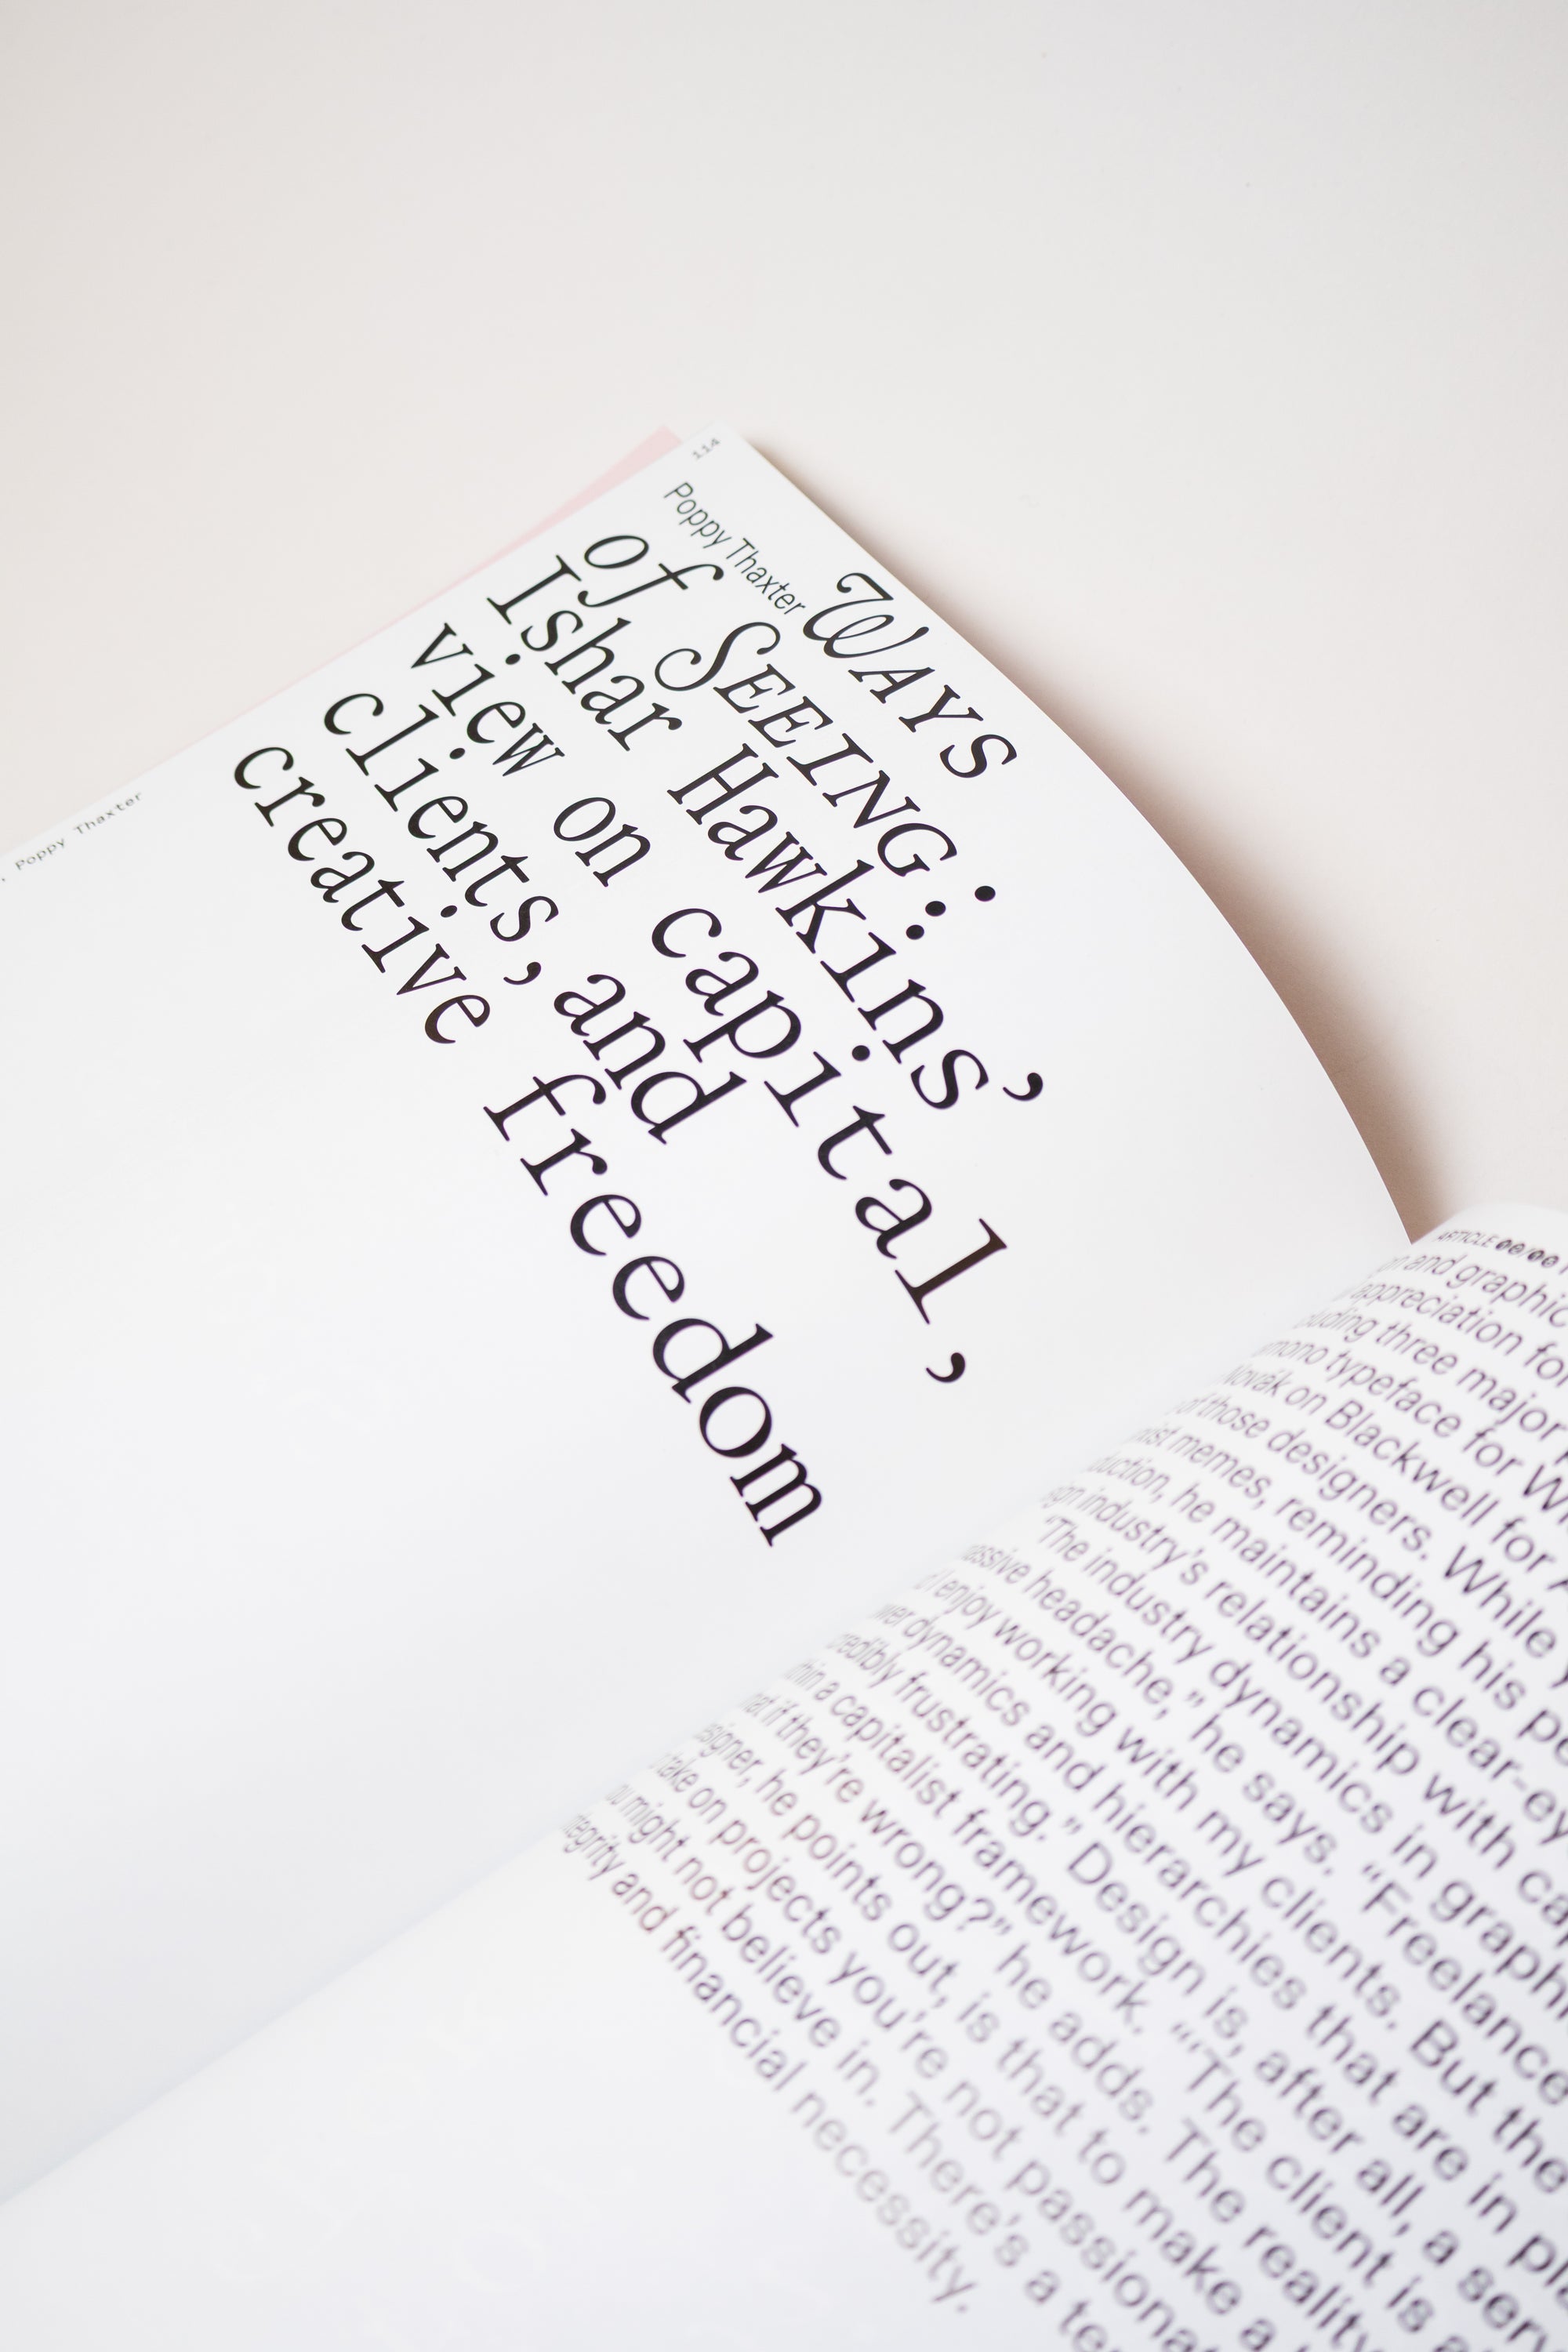 114
Poppy Thaxter
Ways
of Seeing:
Ishar Hawkins’
view on capital,
clients, and
creative freedom
Poppy Thaxter
ARTICLE
and graphic
appreciation for
three major
mono typeface for
Novák on Blackwell for
of those designers. While
memes, reminding his
he maintains a clear-
industry’s relationship with
“The industry dynamics in
headache,” he says. “Freelance
I enjoy working with my clients. But the
dynamics and hierarchies that are in
frustrating.” Design is, after all, a
a capitalist framework. “‘The client is
if they’re wrong?” he adds. The reality
he points out, is that to make a
take on projects you’re not
might not believe in. There’s a
and financial necessity.